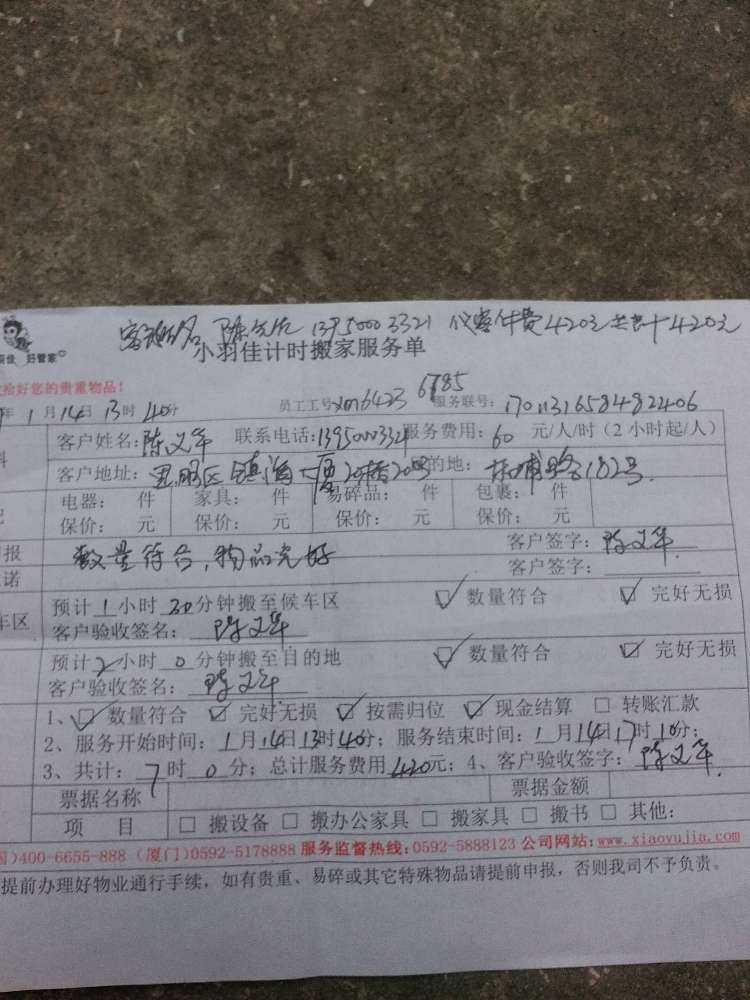 好管家
13950003321 仅客付费420元 共计420元
小羽佳计时搬家服务单
您的贵重物品！
年1月14日13时40分 员工工号xm6423 6785 服务联号：17011316584482406
客户姓名：陈文华 联系电话：13950003321 服务费用：60 元/人/时（2小时起/人）
客户地址：思明区镇海 目的地：182号
电器： 件 家具： 件 易碎品： 件 包裹： 件
保价： 元 保价： 元 保价： 元 保价： 元
报 数量符合，物品完好 客户签字：陈文华
诺 客户签字：
车区 预计1小时30分钟搬至候车区 数量符合 完好无损
客户验收签名：陈文华
预计2小时0分钟搬至目的地 数量符合 完好无损
客户验收签名：陈文华
1、数量符合 完好无损 按需归位 现金结算 转账汇款
2、服务开始时间：1月14日13时40分；服务结束时间：1月14日17时10分；
3、共计：7时0分；总计服务费用420元；4、客户验收签字：陈文华
票据名称 票据金额
项 目 搬设备 搬办公家具 搬家具 搬书 其他：
)400-6655-888 (厦门)0592-5178888 服务监督热线：0592-5888123 公司网站：www.xiaoyujia.com
提前办理好物业通行手续，如有贵重、易碎或其它特殊物品请提前申报，否则我司不予负责。